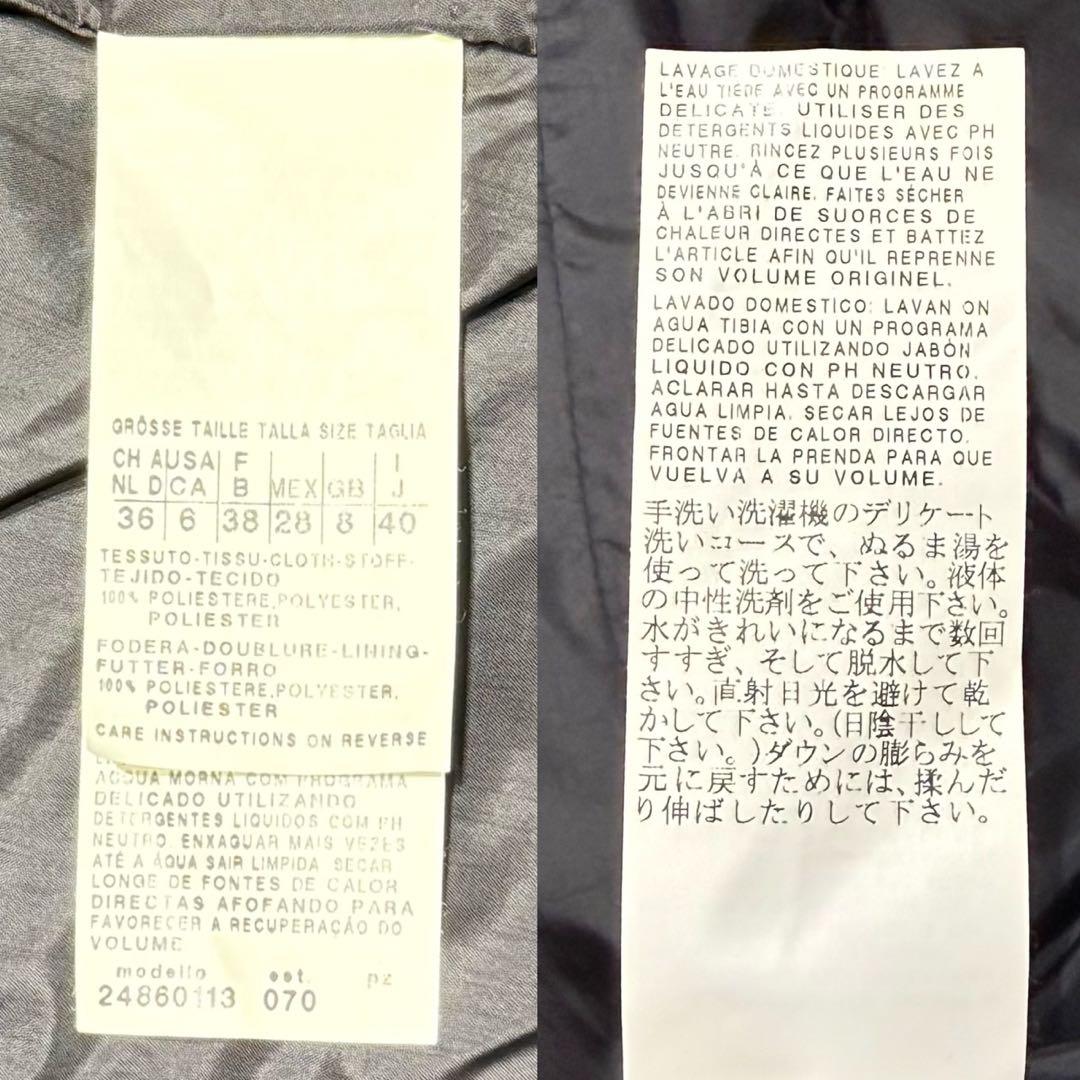 GRÖSSE TAILLE TALLA SIZE TAGLIA
CH A USA F I
NL D CA B MEX GB J
36 6 38 28 8 40
TESSUTO-TISSU-CLOTH-STOFF-
TEJIDO-TECIDO
100% POLIESTERE, POLYESTER,
POLIESTER
FODERA-DOUBLURE-LINING-
FUTTER-FORRO
100% POLIESTERE, POLYESTER,
POLIESTER
CARE INSTRUCTIONS ON REVERSE
ACQUA MORNA COM PROGRAMA
DELICADO UTILIZANDO
DETERGENTES LIQUIDOS COM PH
NEUTRO. ENXAGUAR MAIS VEZES
ATÉ A ÁGUA SAIR LIMPIDA. SECAR
LONGE DE FONTES DE CALOR
DIRECTAS AFOFANDO PARA
FAVORECER A RECUPERAÇÃO DO
VOLUME
modello est. pz
24860113 070
LAVAGE DOMESTIQUE: LAVEZ A
L'EAU TIEDE AVEC UN PROGRAMME
DELICATE. UTILISER DES
DETERGENTS LIQUIDES AVEC PH
NEUTRE. RINCEZ PLUSIEURS FOIS
JUSQU'À CE QUE L'EAU NE
DEVIENNE CLAIRE. FAITES SÉCHER
À L'ABRI DE SUORCES DE
CHALEUR DIRECTES ET BATTEZ
L'ARTICLE AFIN QU'IL REPRENNE
SON VOLUME ORIGINEL.
LAVADO DOMESTICO: LAVAN ON
AGUA TIBIA CON UN PROGRAMA
DELICADO UTILIZANDO JABÓN
LIQUIDO CON PH NEUTRO.
ACLARAR HASTA DESCARGAR
AGUA LIMPIA. SECAR LEJOS DE
FUENTES DE CALOR DIRECTO.
FRONTAR LA PRENDA PARA QUE
VUELVA A SU VOLUME.
手洗い洗濯機のデリケート
洗いコースで、ぬるま湯を
使って洗って下さい。液体
の中性洗剤をご使用下さい。
水がきれいになるまで数回
すすぎ、そして脱水して下
さい。直射日光を避けて乾
かして下さい。(日陰干しして
下さい。)ダウンの膨らみを
元に戻すためには、揉んだ
り伸ばしたりして下さい。